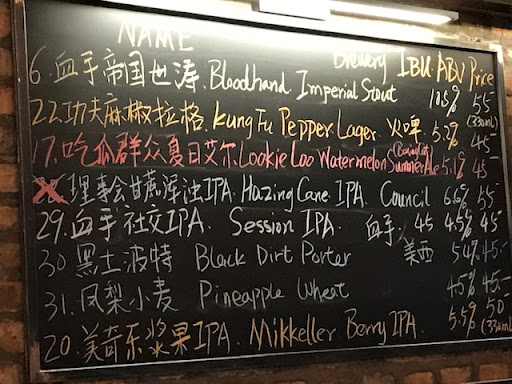 NAME Brewery IBU ABV Price
6. 血手帝国世涛. Bloodhand Imperial Stout 10.5% 55 (330ml)
22. 功夫麻椒拉格. Kung Fu Pepper Lager. 火啤 5.2% 45
17. 吃瓜群众夏日艾尔. Lookie Loo Watermelon Summer Ale 5.1% 45
理事会甘蔗浑浊IPA. Hazing Cane IPA. Council 6.6% 55
29. 血手社交IPA. Session IPA. 血手. 45 4.5% 45
30 黑土波特 Black Dirt Porter 美西 45
31. 凤梨小麦 Pineapple Wheat 45
20. 美奇乐浆果IPA. Mikkeller Berry IPA. 5.5% 50 (330ml)